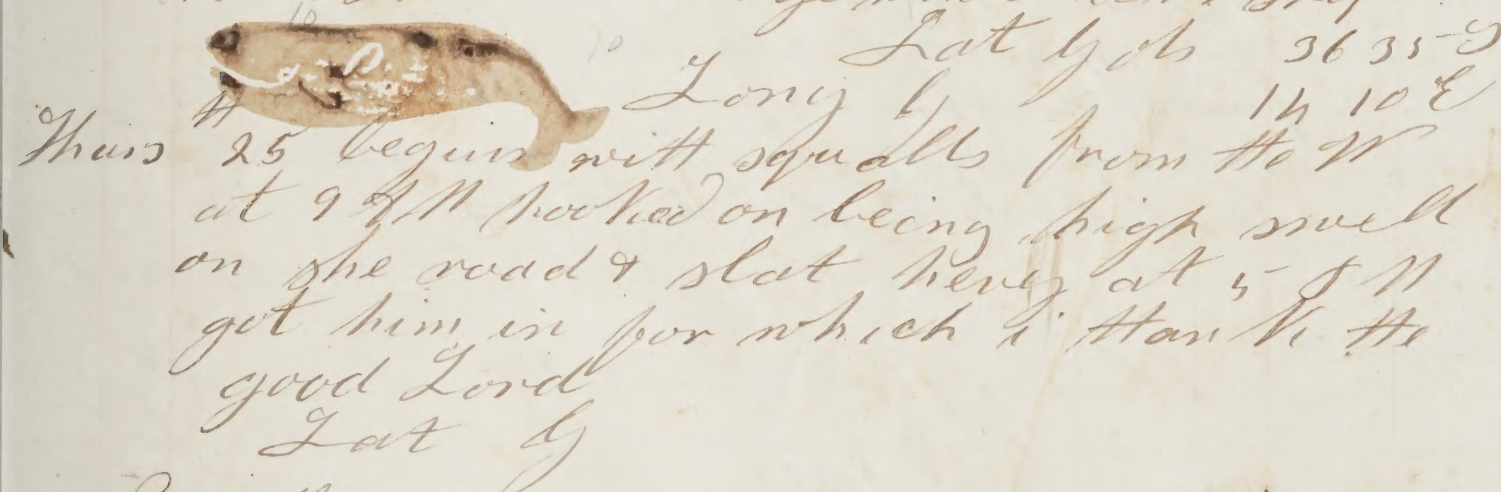 Lat by ob 36 35 S
Long by 14 10 E
Thurs 25 begins with squalls from the W
at 9 AM hooked on being high swell
on she road & slat hevey at 5 PM
got him in for which i thank the
good Lord
Lat by